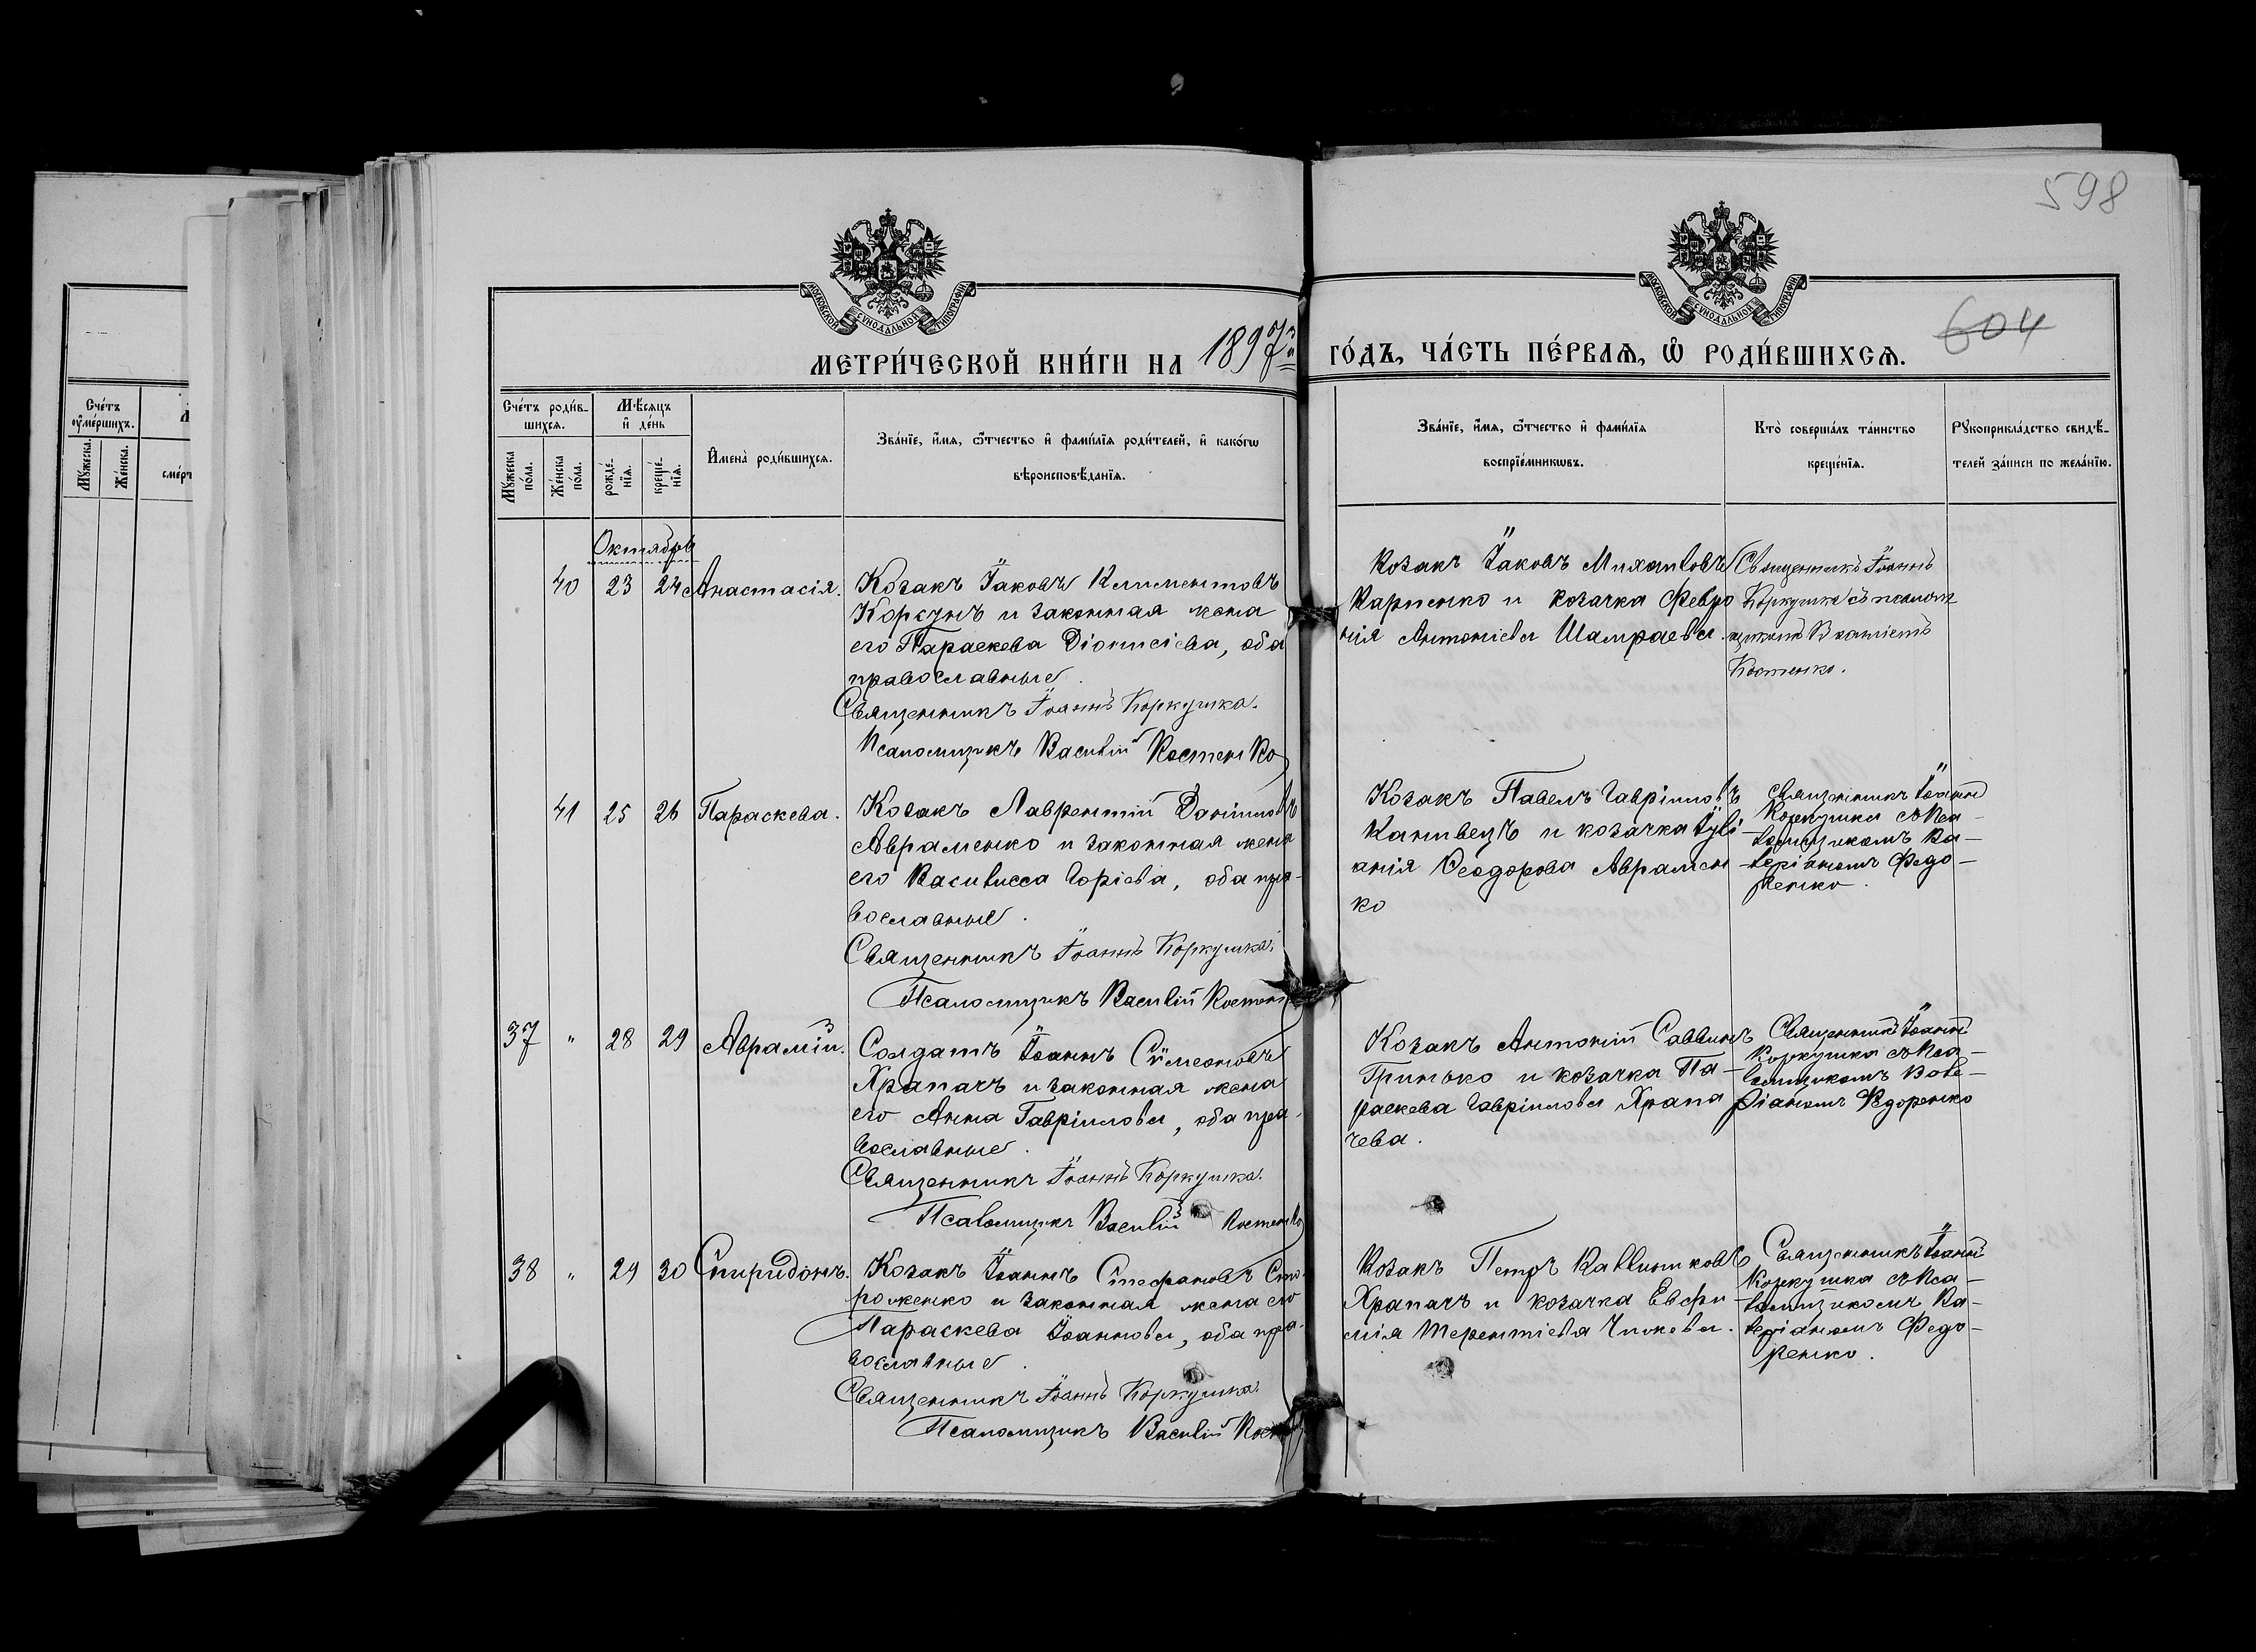 598
МОСКОВСКОЙ СѴНОДАЛЬНОЙ ТИПОГРАФІИ
МОСКОВСКОЙ СѴНОДАЛЬНОЙ ТИПОГРАФІИ
604
МЕТРИ́ЧЕСКОЙ КНИ́ГИ НА 1897й ГО́ДЪ, ЧА́СТЬ ПЕ́РВАѦ, Ѡ РОДИ́ВШИХСѦ.
Сче́тъ
ᲂу҆ме́ршихъ.
Мꙋ́жеска.
Же́нска.
Сче́тъ роди́в-
шихсѧ.
Мꙋ́жеска
по́ла.
Же́нска
по́ла.
Мѣ́сѧцъ
и҆ де́нь
рожде́-
нїѧ.
креще́-
нїѧ.
И҆мена̀ роди́вшихсѧ.
Зва́нїе, и҆́мѧ, ѻ҆́тчество и҆ фами́лїѧ роди́телей, и҆ како́гѡ
вѣроисповѣ́данїѧ.
Зва́нїе, и҆́мѧ, ѻ҆́тчество и҆ фами́лїѧ
воспрїе́мникѡвъ.
Кто̀ соверша́лъ та́инство
креще́нїѧ.
Рꙋкоприкла́дство свидѣ́-
телей за́писи по жела́нїю.
Октябрь
40 23 24 Анастасія.
Козакъ Іаковъ Климентовъ
Корсунъ и законная жена
его Параскева Діонисіева, оба
православные.
Священникъ Іоаннъ Коркушка.
Псаломщикъ Василій Костенко
Козакъ Іаковъ Михаиловъ
Карпенко и козачка Февро
нія Антоніева Шамраева.
Священникъ Іоаннъ
Коркушка съ псалом
щикомъ Василіемъ
Костенко.
41 25 26 Параскева.
Козакъ Лаврентій Даніиловъ
Авраменко и законная жена
его Василисса Горіева, оба пра-
вославные.
Священникъ Іоаннъ Коркушка.
Псаломщикъ Василій Костен
Козакъ Павелъ Гавріиловъ
Канивецъ и козачка Іулі
анія Ѳеодорова Аврамен
ко
Священникъ Іоаннъ
Коркушка съ Пса-
ломщикомъ Ва-
леріаномъ Федо-
ренко.
37 " 28 29 Аврамій.
Солдатъ Іоаннъ Сѵмеоновъ
Храпачъ и законная жена
его Анна Гавріилова, оба пра-
вославные.
Священникъ Іоаннъ Коркушка.
Псаломщикъ Василій Костенко
Козакъ Антоній Саввинъ
Гринько и козачка Па-
раскева Гавріилова Храпа
чева.
Священникъ Іоаннъ
Коркушка съ Пса-
ломщикомъ Вале-
ріаномъ Федоренко
38 " 29 30 Спиридонъ.
Козакъ Іоаннъ Стефановъ Сто-
роженко и законная жена его
Параскева Іоаннова, оба пра-
вославные.
Священникъ Іоаннъ Коркушка.
Псаломщикъ Василій Кост
Козакъ Петръ Каллиниковъ
Храпачъ и козачка Евфи-
мія Терентіева
Священникъ Іоаннъ
Коркушка съ Пса-
ломщикомъ Ва-
леріаномъ Федо-
ренко.